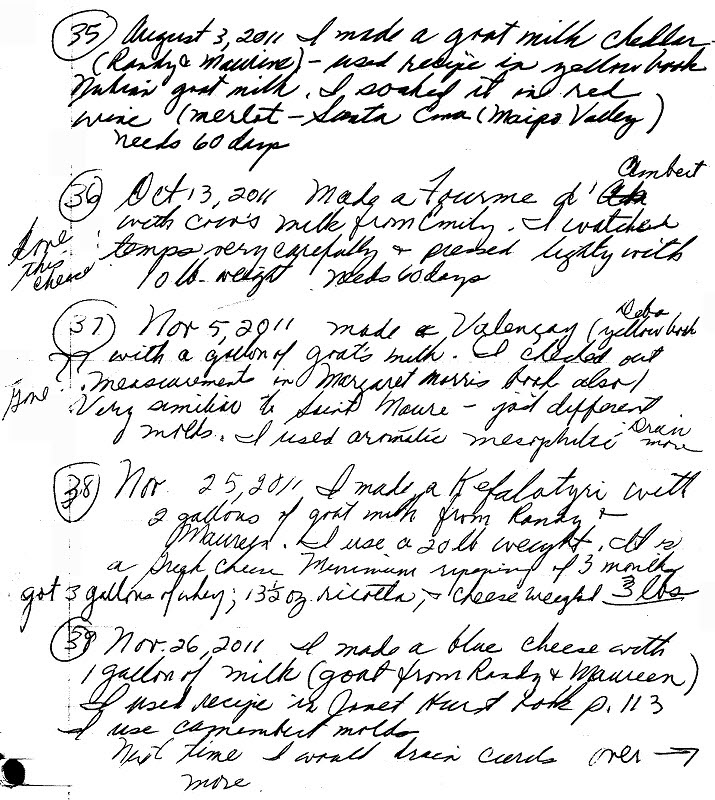 35 August 3, 2011 I made a goat milk cheddar
(Randy & Maureen) - used recipe in yellow book
Nubian goat milk. I soaked it in red
wine (merlot - Santa Ema (Maipo Valley)
needs 60 days
36 Oct 13, 2011 Made a Fourme d' Ambert
with cow's milk from Emily. I watched
temps very carefully & pressed lightly with
10 lb. weight needs 60 days
love this cheese
37 Nov 5, 2011 made a Valençay (Debs yellow book
with a gallon of goat's milk. I checked out
measurements in Margaret Morris book also!
Very similiar to Saint Maure - just different
molds. I used aromatic mesophilic Drain more
38 Nov. 25, 2011 I made a Kefalotyri with
2 gallons of goat milk from Randy &
Maureen. I use a 20 lb weight. It is
a Greek Cheese Minimum ripening of 3 months
got 3 gallons of whey; 13½ oz ricotta, & cheese weighed 3 lbs
39 Nov. 26, 2011 I made a blue cheese with
1 gallon of milk (goat from Randy & Maureen)
I used recipe in Janet Hurst book p. 113
I use camembert molds
Next time I would drain curds over →
more